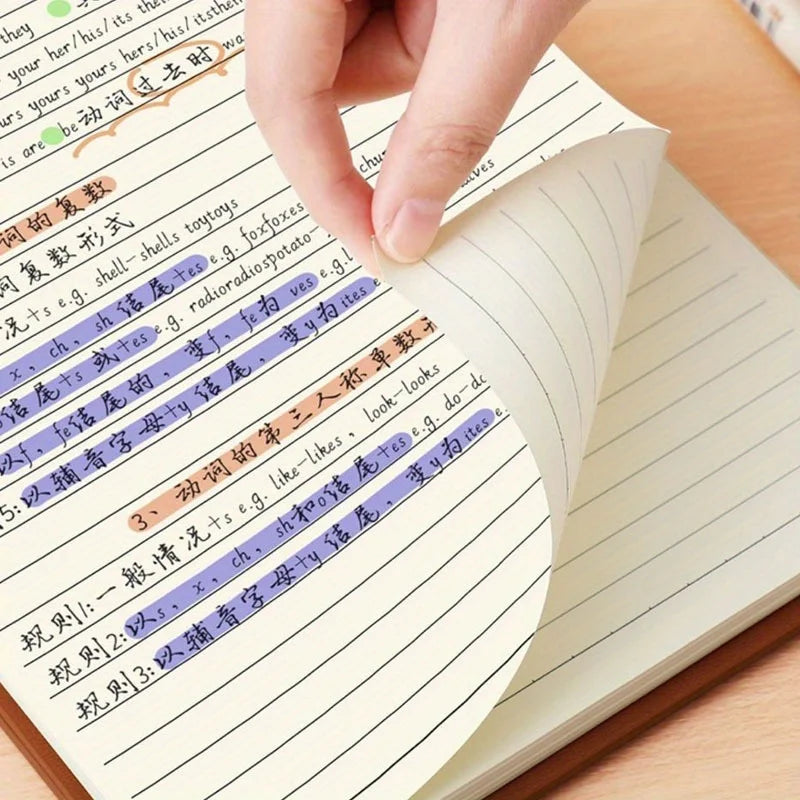 they
your her/his/its thei
urs yours yours hers/his/itstheir
is are be动词过去时 wa
词的复数
词复数形式
况+s e.g. shell-shells toytoys
x, ch, sh结尾+es e.g. foxfoxes
结尾+s 或+es e.g. radioradiospotato-
以f, fe结尾的, 变f, fe为 ves e.g.
5:以辅音字母+y 结尾, 变y为ites e
3、动词的第三人称单数
规则1:一般情况+s e.g. like-likes, look-looks
规则2:以s, x, ch, sh和o结尾+es e.g. do-do
规则3:以辅音字母+y 结尾, 变y为ites e